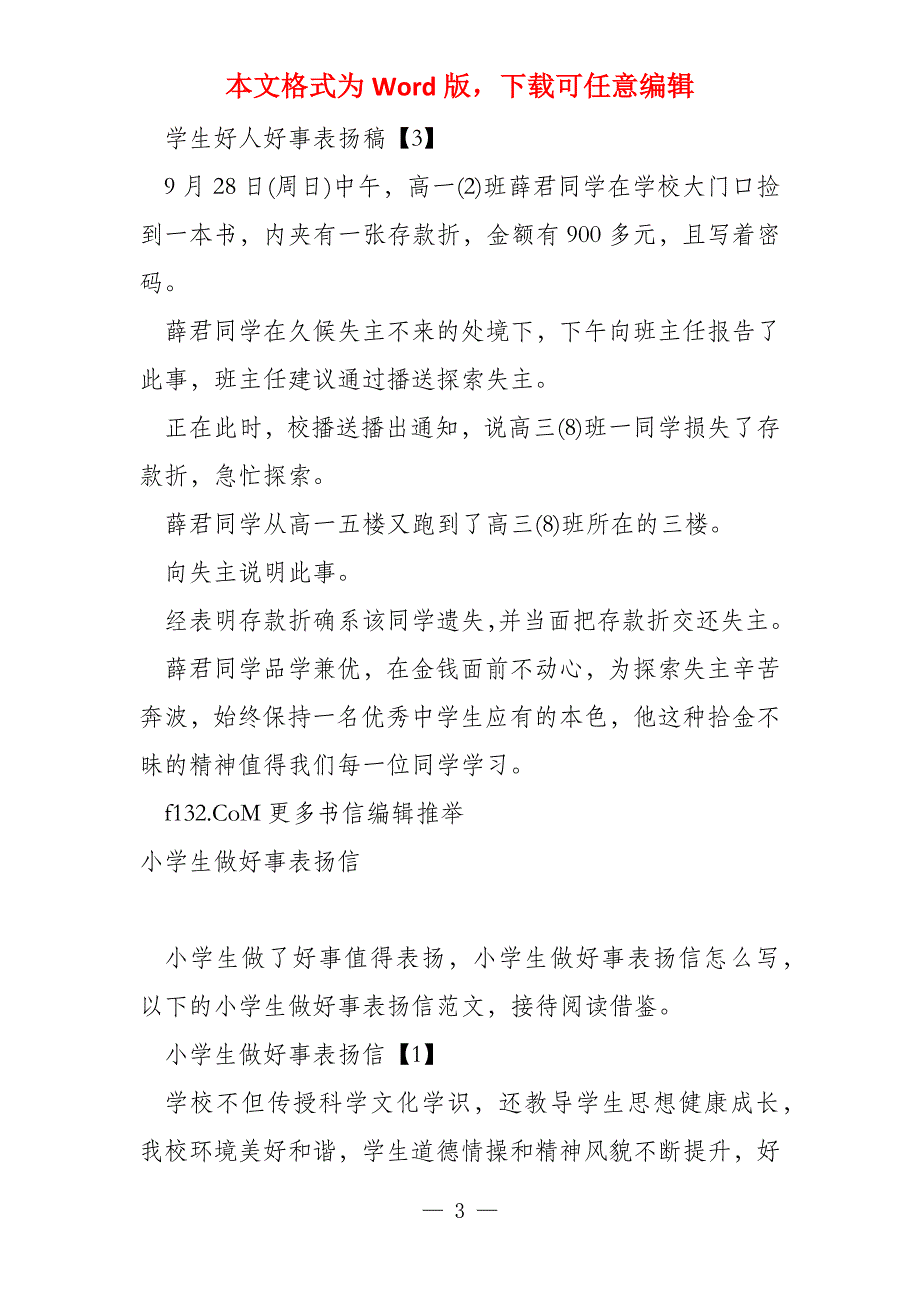 本文格式为 Word 版，下载可任意编辑
学生好人好事表扬稿【3】
9 月 28 日(周日)中午，高一(2)班薛君同学在学校大门口捡
到一本书，内夹有一张存款折，金额有 900 多元，且写着密
码。
薛君同学在久候失主不来的处境下，下午向班主任报告了
此事，班主任建议通过播送探索失主。
正在此时，校播送播出通知，说高三(8)班一同学损失了存
款折，急忙探索。
薛君同学从高一五楼又跑到了高三(8)班所在的三楼。
向失主说明此事。
经表明存款折确系该同学遗失，并当面把存款折交还失主。
薛君同学品学兼优，在金钱面前不动心，为探索失主辛苦
奔波，始终保持一名优秀中学生应有的本色，他这种拾金不
昧的精神值得我们每一位同学学习。
f132.CoM 更多书信编辑推举
小学生做好事表扬信
小学生做了好事值得表扬，小学生做好事表扬信怎么写，
以下的小学生做好事表扬信范文，接待阅读借鉴。
小学生做好事表扬信【1】
学校不但传授科学文化学识，还教导学生思想健康成长，
我校环境美好和谐，学生道德情操和精神风貌不断提升，好
— 3 —